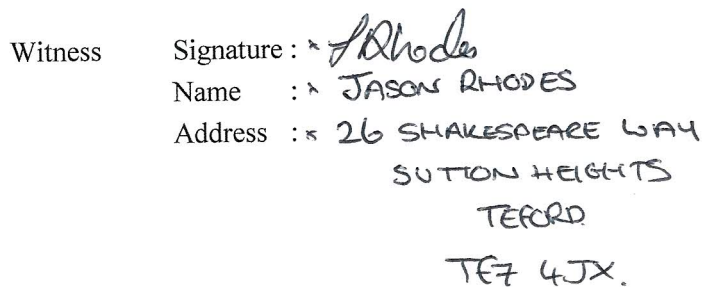 Witness Signature : × J Rhodes
Name : × JASON RHODES
Address : × 26 SHAKESPEARE WAY
SUTTON HEIGHTS
TEFORD
TE7 4JX.